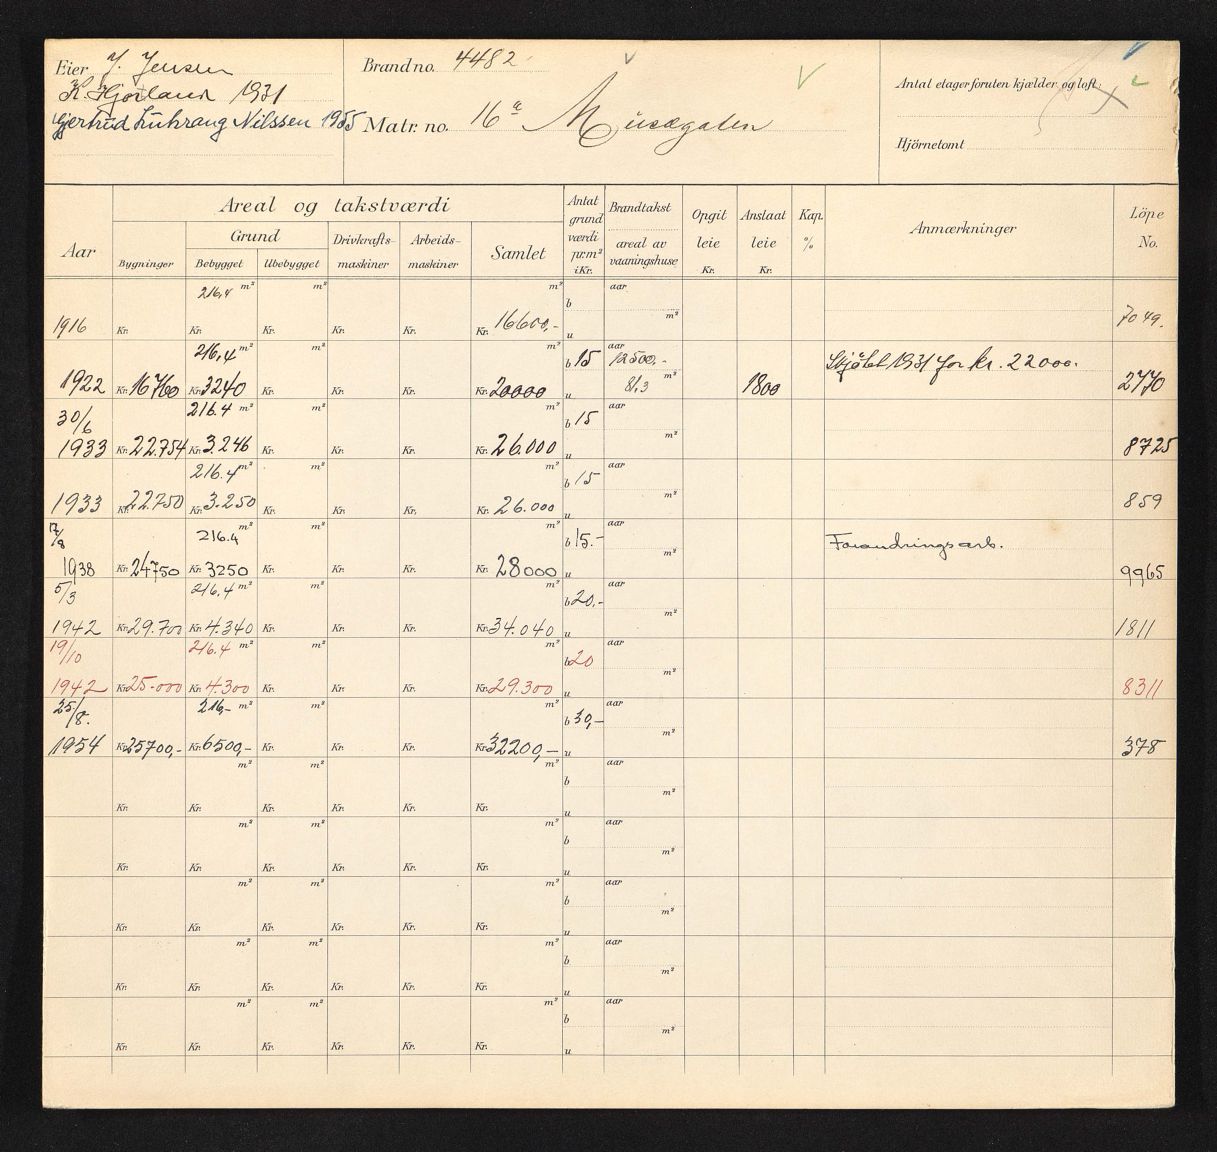 Eier J. Jensen
K. Hjorland 1931
Gjertrud Luhrang Nilssen 1955
Brand no. 4482
Matr. no. 16 a Muségaten
Antal etager foruten kjælder og loft:
Hjörnetomt
Aar
Areal og takstværdi
Grund
Bygninger
Bebygget
Ubebygget
Drivkrafts-maskiner
Arbeids-maskiner
Samlet
Antat grund værdi pr. m² i Kr.
Brandtakst areal av vaaningshuse
Opgit leie Kr.
Anslaat leie Kr.
Kap. %
Anmærkninger
Löpe No.
216,4 m² m² m² b aar
1916 Kr. Kr. Kr. Kr. Kr. Kr. 16600,- u m² 7049.
216,4 m² m² m² b 15 aar 12500,- Skjöte 1931 for kr. 22000.
1922 Kr. 16760 Kr. 3240 Kr. Kr. Kr. Kr. 20000 u 81,3 m² 1800 2770
30/6 216.4 m² m² m² b 15 aar
1933 Kr. 22.754 Kr. 3.246 Kr. Kr. Kr. Kr. 26.000 u m² 8725
216.4 m² m² m² b 15 aar
1933 Kr. 22.750 Kr. 3.250 Kr. Kr. Kr. Kr. 26.000 u m² 859
17/8 216.4 m² m² m² b 15.- aar Forandringsarb.
1938 Kr. 24750 Kr. 3250 Kr. Kr. Kr. Kr. 28000 u m² 9965
5/3 216,4 m² m² m² b 20.- aar
1942 Kr. 29.700 Kr. 4.340 Kr. Kr. Kr. Kr. 34.040 u m² 1811
19/10 216.4 m² m² m² b 20 aar
1942 Kr. 25.000 Kr. 4.300 Kr. Kr. Kr. Kr. 29.300 u m² 8311
25/8. 216,- m² m² m² b 30,- aar
1954 Kr. 25700,- Kr. 6500,- Kr. Kr. Kr. Kr. 32200,- u m² 378
m² m² m² b aar
Kr. Kr. Kr. Kr. Kr. Kr. u m²
m² m² m² b aar
Kr. Kr. Kr. Kr. Kr. Kr. u m²
m² m² m² b aar
Kr. Kr. Kr. Kr. Kr. Kr. u m²
m² m² m² b aar
Kr. Kr. Kr. Kr. Kr. Kr. u m²
m² m² m² b aar
Kr. Kr. Kr. Kr. Kr. Kr. u m²